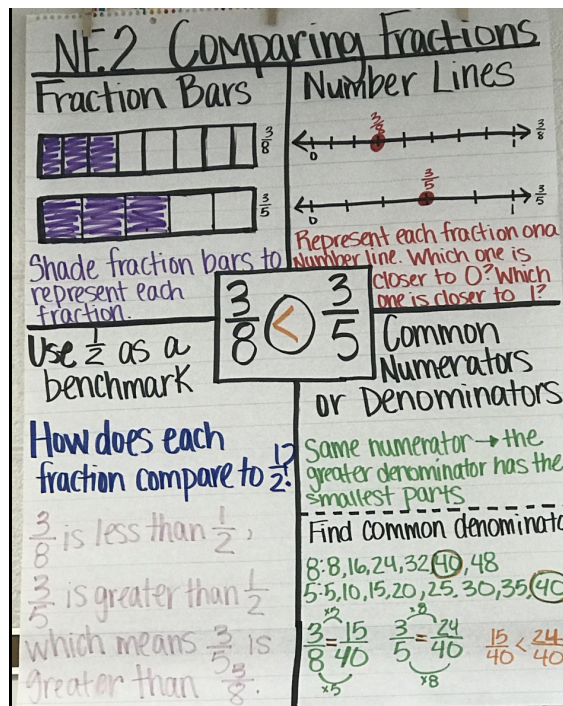 NF.2 Comparing Fractions
Fraction Bars
3/8
3/5
Shade fraction bars to
represent each
fraction.
Number Lines
3/8
0
1
3/8
3/5
0
1
3/5
Represent each fraction on a
Number line. Which one is
closer to 0? Which
one is closer to 1?
3/8 < 3/5
Use 1/2 as a
benchmark
How does each
fraction compare to 1/2?
3/8 is less than 1/2,
3/5 is greater than 1/2
which means 3/5 is
greater than 3/8.
Common
Numerators
or Denominators
Same numerator → the
greater denominator has the
smallest parts
Find common denominato
8: 8, 16, 24, 32, 40, 48
5: 5, 10, 15, 20, 25, 30, 35, 40
x5
x8
3/8 = 15/40
3/5 = 24/40
15/40 < 24/40
x5
x8